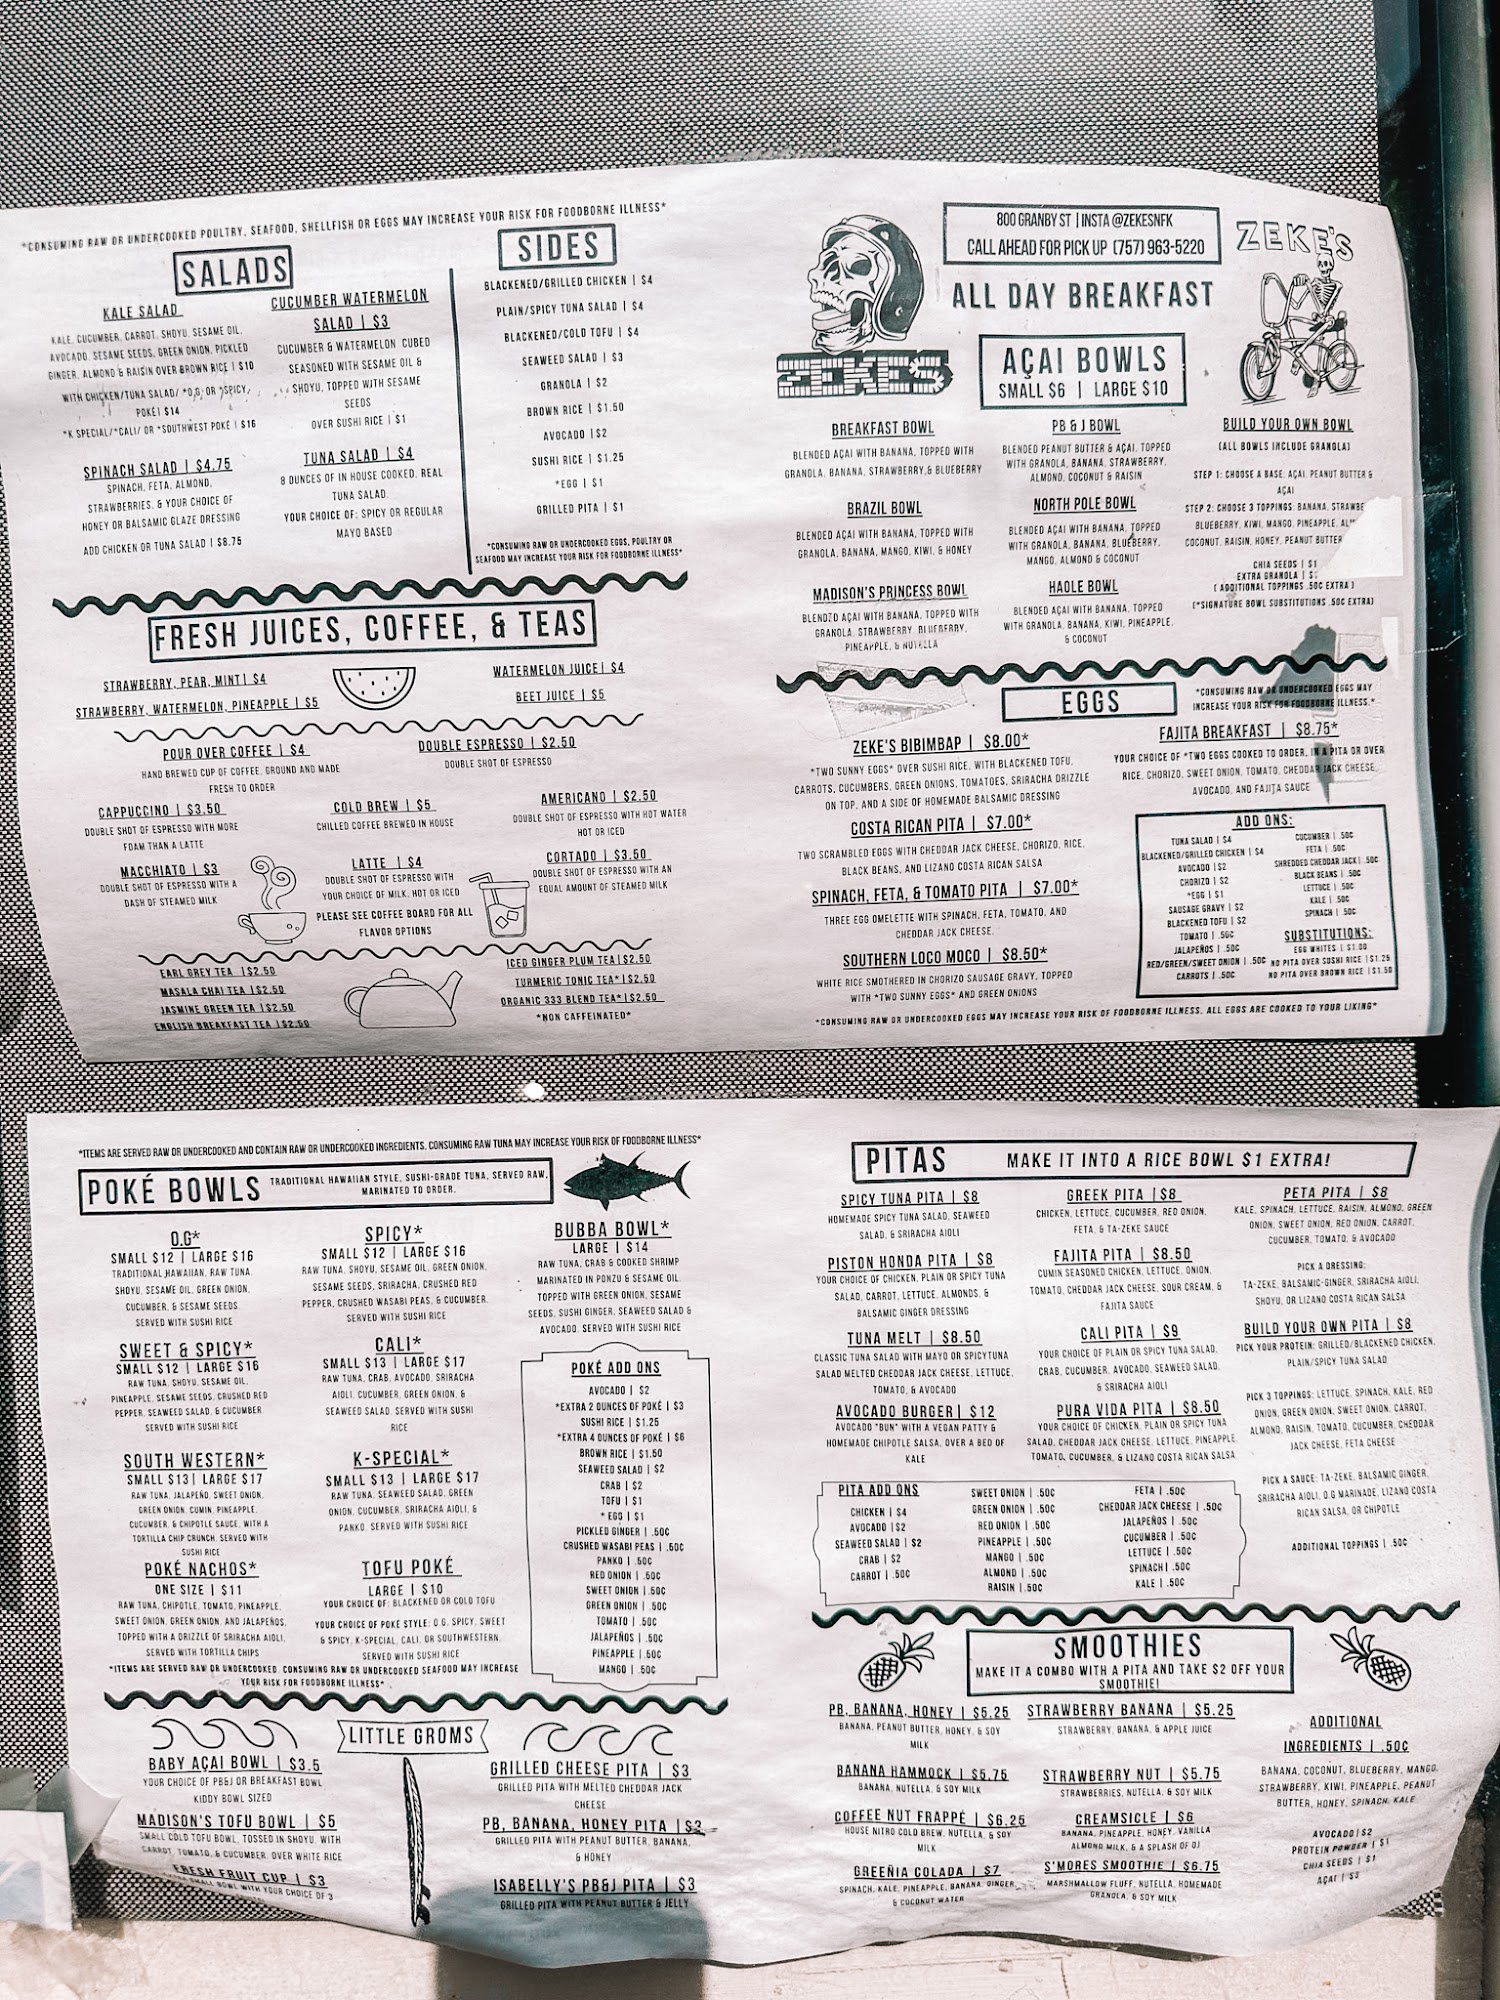 *CONSUMING RAW OR UNDERCOOKED POULTRY, SEAFOOD, SHELLFISH OR EGGS MAY INCREASE YOUR RISK FOR FOODBORNE ILLNESS*
SALADS
KALE SALAD
KALE, CUCUMBER, CARROT, SHOYU, SESAME OIL,
AVOCADO, SESAME SEEDS, GREEN ONION, PICKLED
GINGER, ALMOND & RAISIN OVER BROWN RICE | $10
WITH CHICKEN/TUNA SALAD/ *O.G, OR *SPICY,
POKÉ| $14
*K SPECIAL/*CALI/ OR *SOUTHWEST POKÉ | $16
SPINACH SALAD | $4.75
SPINACH, FETA, ALMOND,
STRAWBERRIES, & YOUR CHOICE OF
HONEY OR BALSAMIC GLAZE DRESSING
ADD CHICKEN OR TUNA SALAD | $8.75
CUCUMBER WATERMELON
SALAD | $3
CUCUMBER & WATERMELON CUBED
SEASONED WITH SESAME OIL &
SHOYU, TOPPED WITH SESAME
SEEDS
OVER SUSHI RICE | $1
TUNA SALAD | $4
8 OUNCES OF IN HOUSE COOKED, REAL
TUNA SALAD.
YOUR CHOICE OF: SPICY OR REGULAR
MAYO BASED
SIDES
BLACKENED/GRILLED CHICKEN | $4
PLAIN/SPICY TUNA SALAD | $4
BLACKENED/COLD TOFU | $4
SEAWEED SALAD | $3
GRANOLA | $2
BROWN RICE | $1.50
AVOCADO |$2
SUSHI RICE | $1.25
*EGG | $1
GRILLED PITA | $1
*CONSUMING RAW OR UNDERCOOKED EGGS, POULTRY OR
SEAFOOD MAY INCREASE YOUR RISK FOR FOODBORNE ILLNESS*
FRESH JUICES, COFFEE, & TEAS
STRAWBERRY, PEAR, MINT| $4
STRAWBERRY, WATERMELON, PINEAPPLE | $5
WATERMELON JUICE| $4
BEET JUICE | $5
POUR OVER COFFEE | $4
HAND BREWED CUP OF COFFEE, GROUND AND MADE
FRESH TO ORDER
DOUBLE ESPRESSO | $2.50
DOUBLE SHOT OF ESPRESSO
CAPPUCCINO | $3.50
DOUBLE SHOT OF ESPRESSO WITH MORE
FOAM THAN A LATTE
COLD BREW | $5
CHILLED COFFEE BREWED IN HOUSE
AMERICANO | $2.50
DOUBLE SHOT OF ESPRESSO WITH HOT WATER
HOT OR ICED
MACCHIATO | $3
DOUBLE SHOT OF ESPRESSO WITH A
DASH OF STEAMED MILK
LATTE | $4
DOUBLE SHOT OF ESPRESSO WITH
YOUR CHOICE OF MILK, HOT OR ICED
PLEASE SEE COFFEE BOARD FOR ALL
FLAVOR OPTIONS
CORTADO | $3.50
DOUBLE SHOT OF ESPRESSO WITH AN
EQUAL AMOUNT OF STEAMED MILK
EARL GREY TEA |$2.50
MASALA CHAI TEA |$2.50
JASMINE GREEN TEA |$2.50
ENGLISH BREAKFAST TEA |$2.50
ICED GINGER PLUM TEA|$2.50
TURMERIC TONIC TEA*|$2.50
ORGANIC 333 BLEND TEA*|$2.50
*NON CAFFEINATED*
800 GRANBY ST | INSTA @ZEKESNFK
CALL AHEAD FOR PICK UP (757) 963-5220
ZEKES
ZEKE'S
ALL DAY BREAKFAST
AÇAI BOWLS
SMALL $6 | LARGE $10
BREAKFAST BOWL
BLENDED AÇAI WITH BANANA, TOPPED WITH
GRANOLA, BANANA, STRAWBERRY,& BLUEBERRY
BRAZIL BOWL
BLENDED AÇAI WITH BANANA, TOPPED WITH
GRANOLA, BANANA, MANGO, KIWI, & HONEY
MADISON'S PRINCESS BOWL
BLENDED AÇAI WITH BANANA, TOPPED WITH
GRANOLA, STRAWBERRY, BLUEBERRY,
PINEAPPLE, & NUTELLA
PB & J BOWL
BLENDED PEANUT BUTTER & AÇAI, TOPPED
WITH GRANOLA, BANANA, STRAWBERRY,
ALMOND, COCONUT & RAISIN
NORTH POLE BOWL
BLENDED AÇAI WITH BANANA, TOPPED
WITH GRANOLA, BANANA, BLUEBERRY,
MANGO, ALMOND & COCONUT
HAOLE BOWL
BLENDED AÇAI WITH BANANA, TOPPED
WITH GRANOLA, BANANA, KIWI, PINEAPPLE,
& COCONUT
BUILD YOUR OWN BOWL
(ALL BOWLS INCLUDE GRANOLA)
STEP 1: CHOOSE A BASE: AÇAI, PEANUT BUTTER &
AÇAI
STEP 2: CHOOSE 3 TOPPINGS: BANANA, STRAWBE
BLUEBERRY, KIWI, MANGO, PINEAPPLE, AL
COCONUT, RAISIN, HONEY, PEANUT BUTTER
CHIA SEEDS | $1
EXTRA GRANOLA |
( ADDITIONAL TOPPINGS .50¢ EXTRA )
(*SIGNATURE BOWL SUBSTITUTIONS .50¢ EXTRA)
EGGS
*CONSUMING RAW OR UNDERCOOKED EGGS MAY
INCREASE YOUR RISK FOR FOODBORNE ILLNESS.*
ZEKE'S BIBIMBAP | $8.00*
*TWO SUNNY EGGS* OVER SUSHI RICE, WITH BLACKENED TOFU,
CARROTS, CUCUMBERS, GREEN ONIONS, TOMATOES, SRIRACHA DRIZZLE
ON TOP, AND A SIDE OF HOMEMADE BALSAMIC DRESSING
COSTA RICAN PITA | $7.00*
TWO SCRAMBLED EGGS WITH CHEDDAR JACK CHEESE, CHORIZO, RICE,
BLACK BEANS, AND LIZANO COSTA RICAN SALSA
SPINACH, FETA, & TOMATO PITA | $7.00*
THREE EGG OMELETTE WITH SPINACH, FETA, TOMATO, AND
CHEDDAR JACK CHEESE.
SOUTHERN LOCO MOCO | $8.50*
WHITE RICE SMOTHERED IN CHORIZO SAUSAGE GRAVY, TOPPED
WITH *TWO SUNNY EGGS* AND GREEN ONIONS
FAJITA BREAKFAST | $8.75*
YOUR CHOICE OF *TWO EGGS COOKED TO ORDER, IN A PITA OR OVER
RICE, CHORIZO, SWEET ONION, TOMATO, CHEDDAR JACK CHEESE,
AVOCADO, AND FAJITA SAUCE
ADD ONS:
TUNA SALAD | $4
BLACKENED/GRILLED CHICKEN | $4
AVOCADO |$2
CHORIZO | $2
*EGG | $1
SAUSAGE GRAVY | $2
BLACKENED TOFU | $2
TOMATO | .50¢
JALAPEÑOS | .50¢
RED/GREEN/SWEET ONION | .50¢
CARROTS | .50¢
CUCUMBER | .50¢
FETA | .50¢
SHREDDED CHEDDAR JACK| .50¢
BLACK BEANS | .50¢
LETTUCE | .50¢
KALE | .50¢
SPINACH | .50¢
SUBSTITUTIONS:
EGG WHITES | $1.00
NO PITA OVER SUSHI RICE |$1.25
NO PITA OVER BROWN RICE |$1.50
*CONSUMING RAW OR UNDERCOOKED EGGS MAY INCREASE YOUR RISK OF FOODBORNE ILLNESS, ALL EGGS ARE COOKED TO YOUR LIKING*
*ITEMS ARE SERVED RAW OR UNDERCOOKED AND CONTAIN RAW OR UNDERCOOKED INGREDIENTS. CONSUMING RAW TUNA MAY INCREASE YOUR RISK OF FOODBORNE ILLNESS*
POKÉ BOWLS
TRADITIONAL HAWAIIAN STYLE, SUSHI-GRADE TUNA, SERVED RAW,
MARINATED TO ORDER.
O.G*
SMALL $12 | LARGE $16
TRADITIONAL HAWAIIAN, RAW TUNA,
SHOYU, SESAME OIL, GREEN ONION,
CUCUMBER, & SESAME SEEDS.
SERVED WITH SUSHI RICE
SWEET & SPICY*
SMALL $12 | LARGE $16
RAW TUNA, SHOYU, SESAME OIL,
PINEAPPLE, SESAME SEEDS, CRUSHED RED
PEPPER, SEAWEED SALAD, & CUCUMBER.
SERVED WITH SUSHI RICE
SOUTH WESTERN*
SMALL $13| LARGE $17
RAW TUNA, JALAPEÑO, SWEET ONION,
GREEN ONION, CUMIN, PINEAPPLE,
CUCUMBER, & CHIPOTLE SAUCE, WITH A
TORTILLA CHIP CRUNCH. SERVED WITH
SUSHI RICE
POKÉ NACHOS*
ONE SIZE | $11
RAW TUNA, CHIPOTLE, TOMATO, PINEAPPLE,
SWEET ONION, GREEN ONION, AND JALAPEÑOS,
TOPPED WITH A DRIZZLE OF SRIRACHA AIOLI,
SERVED WITH TORTILLA CHIPS
SPICY*
SMALL $12 | LARGE $16
RAW TUNA, SHOYU, SESAME OIL, GREEN ONION,
SESAME SEEDS, SRIRACHA, CRUSHED RED
PEPPER, CRUSHED WASABI PEAS, & CUCUMBER.
SERVED WITH SUSHI RICE
CALI*
SMALL $13 | LARGE $17
RAW TUNA, CRAB, AVOCADO, SRIRACHA
AIOLI, CUCUMBER, GREEN ONION, &
SEAWEED SALAD. SERVED WITH SUSHI
RICE
K-SPECIAL*
SMALL $13 | LARGE $17
RAW TUNA, SEAWEED SALAD, GREEN
ONION, CUCUMBER, SRIRACHA AIOLI, &
PANKO. SERVED WITH SUSHI RICE
TOFU POKÉ
LARGE | $10
YOUR CHOICE OF: BLACKENED OR COLD TOFU
YOUR CHOICE OF POKÉ STYLE: O.G, SPICY, SWEET
& SPICY, K-SPECIAL, CALI, OR SOUTHWESTERN.
SERVED WITH SUSHI RICE
*ITEMS ARE SERVED RAW OR UNDERCOOKED. CONSUMING RAW OR UNDERCOOKED SEAFOOD MAY INCREASE
YOUR RISK FOR FOODBORNE ILLNESS*
BUBBA BOWL*
LARGE | $14
RAW TUNA, CRAB & COOKED SHRIMP
MARINATED IN PONZU & SESAME OIL
TOPPED WITH GREEN ONION, SESAME
SEEDS, SUSHI GINGER, SEAWEED SALAD &
AVOCADO. SERVED WITH SUSHI RICE
POKÉ ADD ONS
AVOCADO | $2
*EXTRA 2 OUNCES OF POKÉ | $3
SUSHI RICE | $1.25
*EXTRA 4 OUNCES OF POKÉ | $6
BROWN RICE | $1.50
SEAWEED SALAD | $2
CRAB | $2
TOFU | $1
* EGG | $1
PICKLED GINGER | .50¢
CRUSHED WASABI PEAS | .50¢
PANKO | .50¢
RED ONION | .50¢
SWEET ONION | .50¢
GREEN ONION | .50¢
TOMATO | .50¢
JALAPEÑOS | .50¢
PINEAPPLE | .50¢
MANGO | .50¢
LITTLE GROMS
BABY AÇAI BOWL | $3.5
YOUR CHOICE OF PB&J OR BREAKFAST BOWL
KIDDY BOWL SIZED
MADISON'S TOFU BOWL | $5
SMALL COLD TOFU BOWL, TOSSED IN SHOYU, WITH
CARROT, TOMATO, & CUCUMBER, OVER WHITE RICE
FRESH FRUIT CUP | $3
SMALL BOWL WITH YOUR CHOICE OF 3
GRILLED CHEESE PITA | $3
GRILLED PITA WITH MELTED CHEDDAR JACK
CHEESE
PB, BANANA, HONEY PITA |$3
GRILLED PITA WITH PEANUT BUTTER, BANANA,
& HONEY
ISABELLY'S PB&J PITA | $3
GRILLED PITA WITH PEANUT BUTTER & JELLY
PITAS
MAKE IT INTO A RICE BOWL $1 EXTRA!
SPICY TUNA PITA | $8
HOMEMADE SPICY TUNA SALAD, SEAWEED
SALAD, & SRIRACHA AIOLI
PISTON HONDA PITA | $8
YOUR CHOICE OF CHICKEN, PLAIN OR SPICY TUNA
SALAD, CARROT, LETTUCE, ALMONDS, &
BALSAMIC GINGER DRESSING
TUNA MELT | $8.50
CLASSIC TUNA SALAD WITH MAYO OR SPICYTUNA
SALAD MELTED CHEDDAR JACK CHEESE, LETTUCE,
TOMATO, & AVOCADO
AVOCADO BURGER| $12
AVOCADO "BUN" WITH A VEGAN PATTY &
HOMEMADE CHIPOTLE SALSA, OVER A BED OF
KALE
GREEK PITA |$8
CHICKEN, LETTUCE, CUCUMBER, RED ONION,
FETA, & TA-ZEKE SAUCE
FAJITA PITA | $8.50
CUMIN SEASONED CHICKEN, LETTUCE, ONION,
TOMATO, CHEDDAR JACK CHEESE, SOUR CREAM, &
FAJITA SAUCE
CALI PITA | $9
YOUR CHOICE OF PLAIN OR SPICY TUNA SALAD,
CRAB, CUCUMBER, AVOCADO, SEAWEED SALAD,
& SRIRACHA AIOLI
PURA VIDA PITA | $8.50
YOUR CHOICE OF CHICKEN, PLAIN OR SPICY TUNA
SALAD, CHEDDAR JACK CHEESE, LETTUCE, PINEAPPLE,
TOMATO, CUCUMBER, & LIZANO COSTA RICAN SALSA
PETA PITA | $8
KALE, SPINACH, LETTUCE, RAISIN, ALMOND, GREEN
ONION, SWEET ONION, RED ONION, CARROT,
CUCUMBER, TOMATO, & AVOCADO
PICK A DRESSING:
TA-ZEKE, BALSAMIC-GINGER, SRIRACHA AIOLI,
SHOYU, OR LIZANO COSTA RICAN SALSA
BUILD YOUR OWN PITA | $8
PICK YOUR PROTEIN: GRILLED/BLACKENED CHICKEN,
PLAIN/SPICY TUNA SALAD
PICK 3 TOPPINGS: LETTUCE, SPINACH, KALE, RED
ONION, GREEN ONION, SWEET ONION, CARROT,
ALMOND, RAISIN, TOMATO, CUCUMBER, CHEDDAR
JACK CHEESE, FETA CHEESE
PICK A SAUCE: TA-ZEKE, BALSAMIC GINGER,
SRIRACHA AIOLI, O.G MARINADE, LIZANO COSTA
RICAN SALSA, OR CHIPOTLE
ADDITIONAL TOPPINGS | .50¢
PITA ADD ONS
CHICKEN | $4
AVOCADO |$2
SEAWEED SALAD | $2
CRAB | $2
CARROT | .50¢
SWEET ONION | .50¢
GREEN ONION | .50¢
RED ONION | .50¢
PINEAPPLE | .50¢
MANGO | .50¢
ALMOND | .50¢
RAISIN | .50¢
FETA | .50¢
CHEDDAR JACK CHEESE | .50¢
JALAPEÑOS | .50¢
CUCUMBER | .50¢
LETTUCE | .50¢
SPINACH| .50¢
KALE | .50¢
SMOOTHIES
MAKE IT A COMBO WITH A PITA AND TAKE $2 OFF YOUR
SMOOTHIE!
PB, BANANA, HONEY | $5.25
BANANA, PEANUT BUTTER, HONEY, & SOY
MILK
BANANA HAMMOCK | $5.75
BANANA, NUTELLA, & SOY MILK
COFFEE NUT FRAPPÉ | $6.25
HOUSE NITRO COLD BREW, NUTELLA, & SOY
MILK
GREEÑIA COLADA | $7
SPINACH, KALE, PINEAPPLE, BANANA, GINGER,
& COCONUT WATER
STRAWBERRY BANANA | $5.25
STRAWBERRY, BANANA, & APPLE JUICE
STRAWBERRY NUT | $5.75
STRAWBERRIES, NUTELLA, & SOY MILK
CREAMSICLE | $6
BANANA, PINEAPPLE, HONEY, VANILLA
ALMOND MILK, & A SPLASH OF OJ
S'MORES SMOOTHIE | $6.75
MARSHMALLOW FLUFF, NUTELLA, HOMEMADE
GRANOLA, & SOY MILK
ADDITIONAL
INGREDIENTS | .50¢
BANANA, COCONUT, BLUEBERRY, MANGO,
STRAWBERRY, KIWI, PINEAPPLE, PEANUT
BUTTER, HONEY, SPINACH, KALE
AVOCADO|$2
PROTEIN POWDER | $1
CHIA SEEDS | $1
AÇAI |